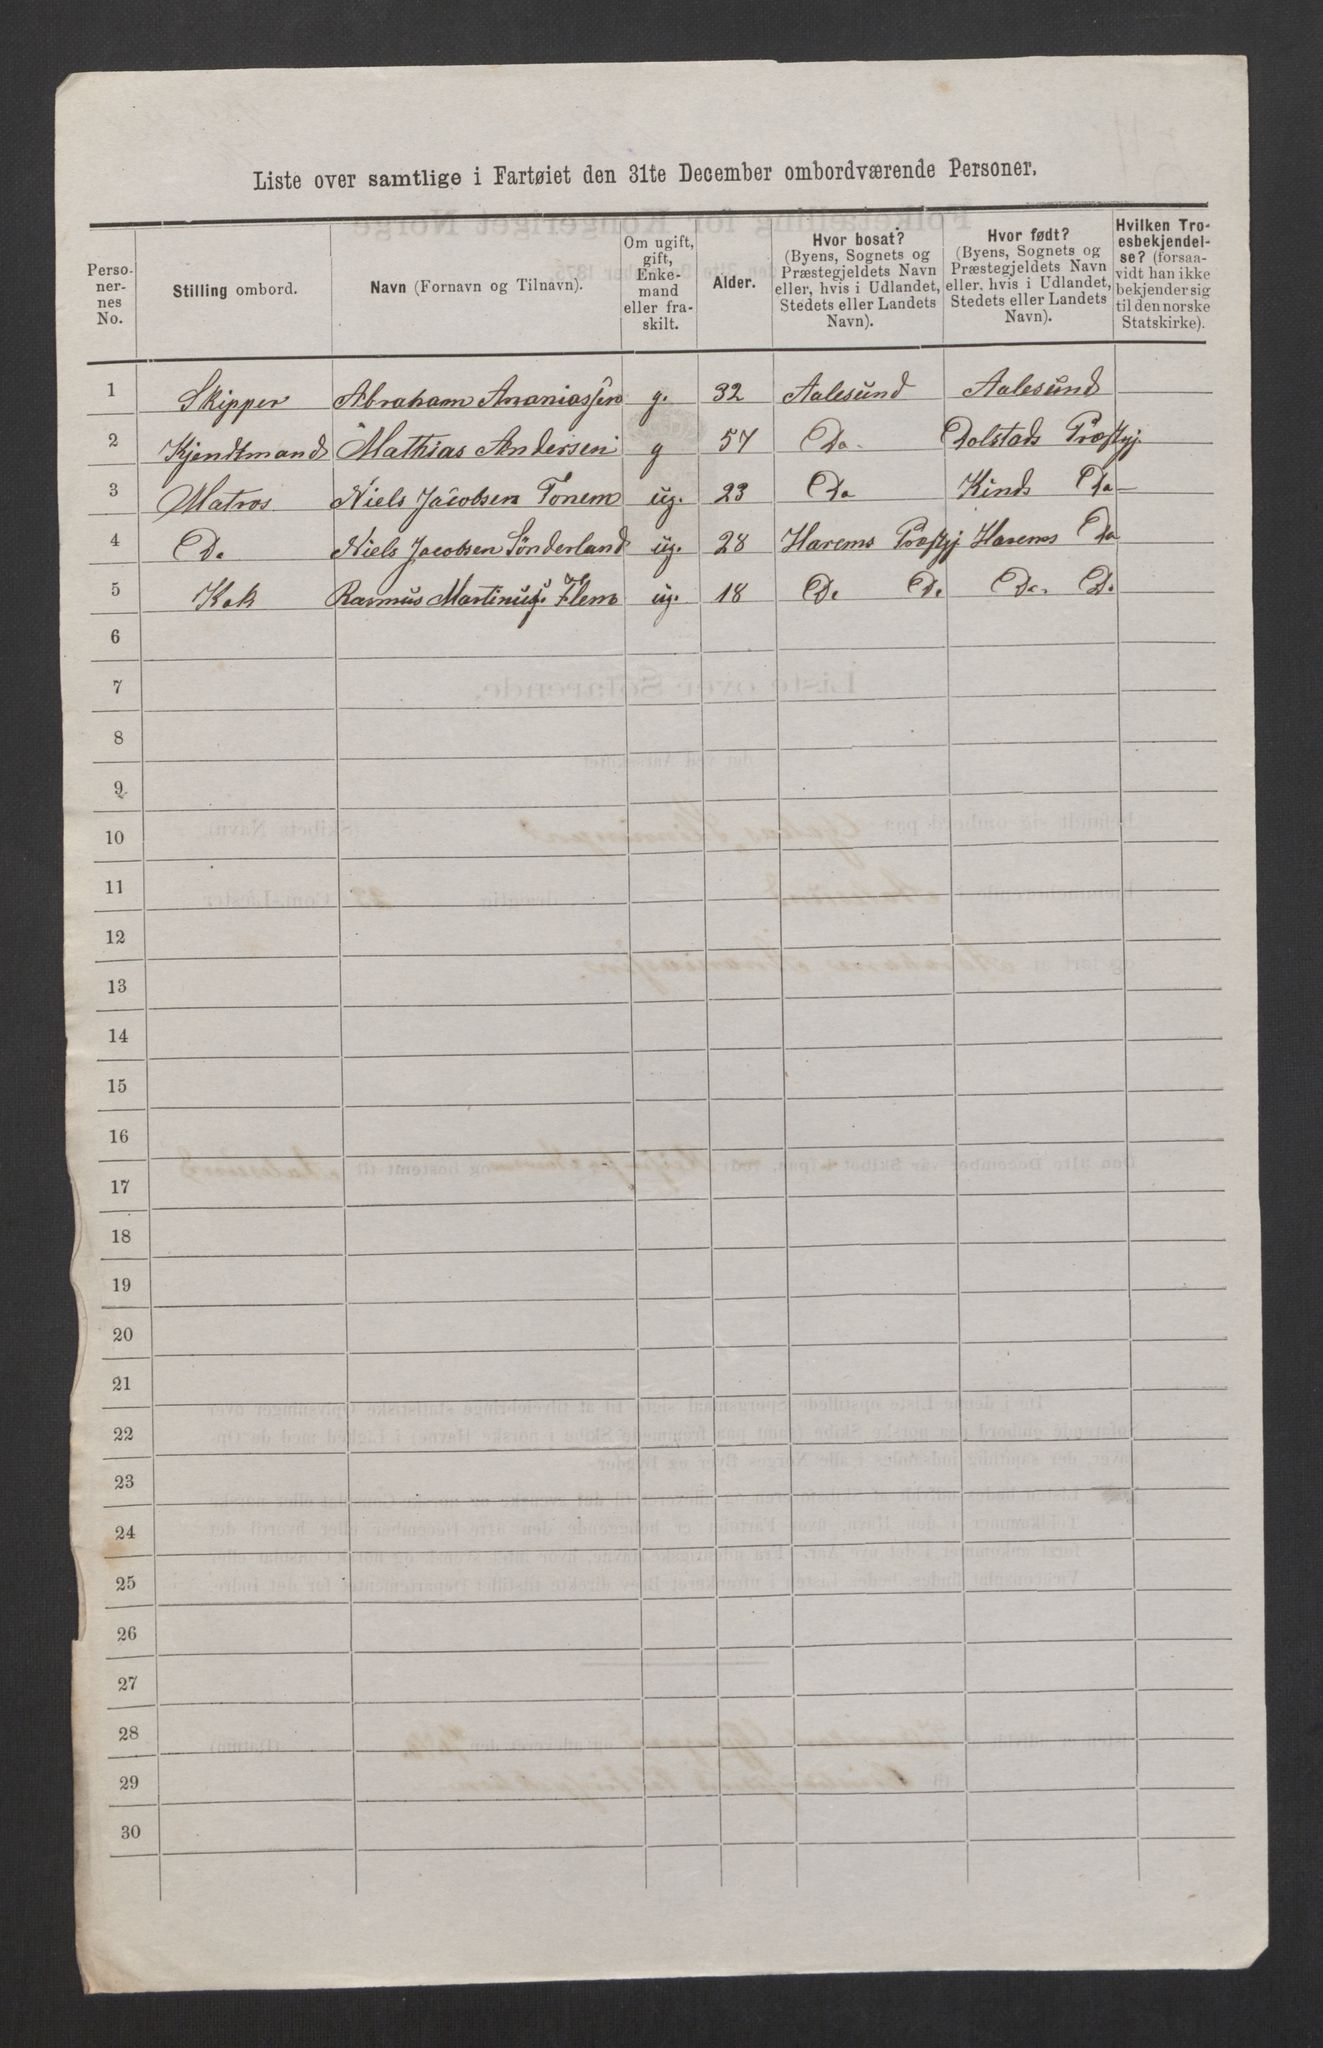 Liste over samtlige i Fartøiet den 31te December ombordværende Personer.
Personernes No. | Stilling ombord. | Navn (Fornavn og Tilnavn). | Om ugift, gift, Enkemand eller fraskilt. | Alder. | Hvor bosat? (Byens, Sognets og Præstegjeldets Navn eller, hvis i Udlandet, Stedets eller Landets Navn). | Hvor født? (Byens, Sognets og Præstegjeldets Navn eller, hvis i Udlandet, Stedets eller Landets Navn). | Hvilken Troesbekjendelse? (forsaavidt han ikke bekjender sig til den norske Statskirke).
1 Skipper Abraham Ananiassen g. 32 Aalesund Aalesund
2 Kjendtmand Mathias Andersen g 57 Do Dolstads Præstgj
3 Matros Niels Jacobsen Tonem ug. 23 Do Kinds Do
4 Do Niels Jacobsen Sønderland ug. 28 Harems Præstgj Harems Do
5 Kok Rasmus Martinus. Flem ug. 18 Do Do Do. Do
6
7
8
9
10
11
12
13
14
15
16
17
18
19
20
21
22
23
24
25
26
27
28
29
30